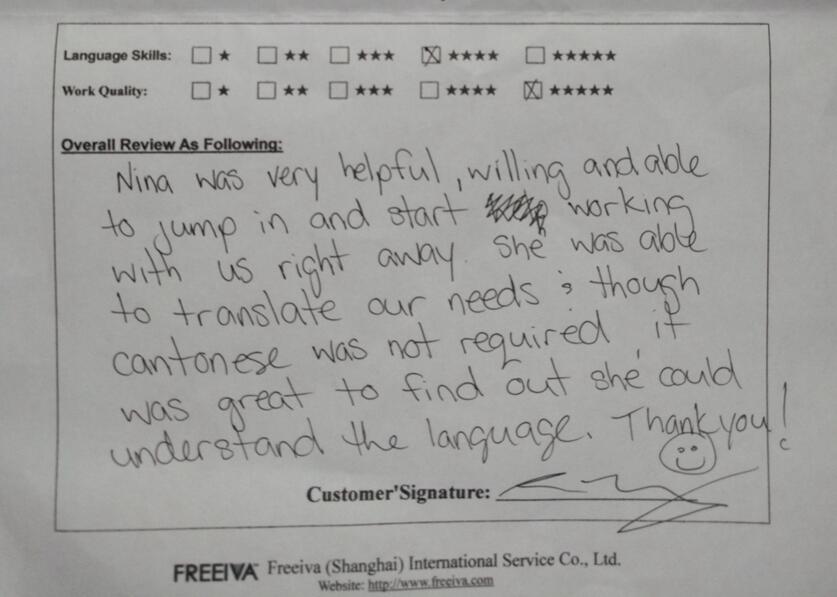 Language Skills: ☐ ★ ☐ ★★ ☐ ★★★ ☒ ★★★★ ☐ ★★★★★
Work Quality: ☐ ★ ☐ ★★ ☐ ★★★ ☐ ★★★★ ☒ ★★★★★
Overall Review As Following:
Nina was very helpful, willing and able
to jump in and start working
with us right away. She was able
to translate our needs & though
cantonese was not required, it
was great to find out she could
understand the language. Thank you!
Customer'Signature:
FREEIVA Freeiva (Shanghai) International Service Co., Ltd.
Website: http://www.freeiva.com